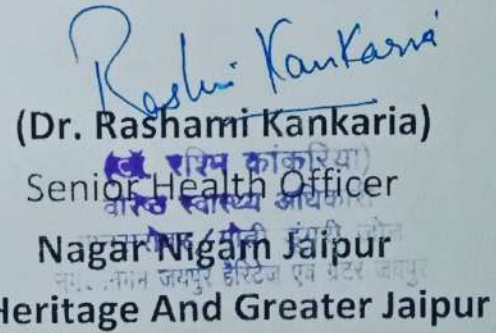 Rashmi Kankaria
(Dr. Rashami Kankaria)
(डॉ. रश्मि कांकरिया)
Senior Health Officer
वरिष्ठ स्वास्थ्य अधिकारी
Nagar Nigam Jaipur
मोती डूंगरी जोन
जयपुर हैरिटेज एवं ग्रेटर जयपुर
Heritage And Greater Jaipur